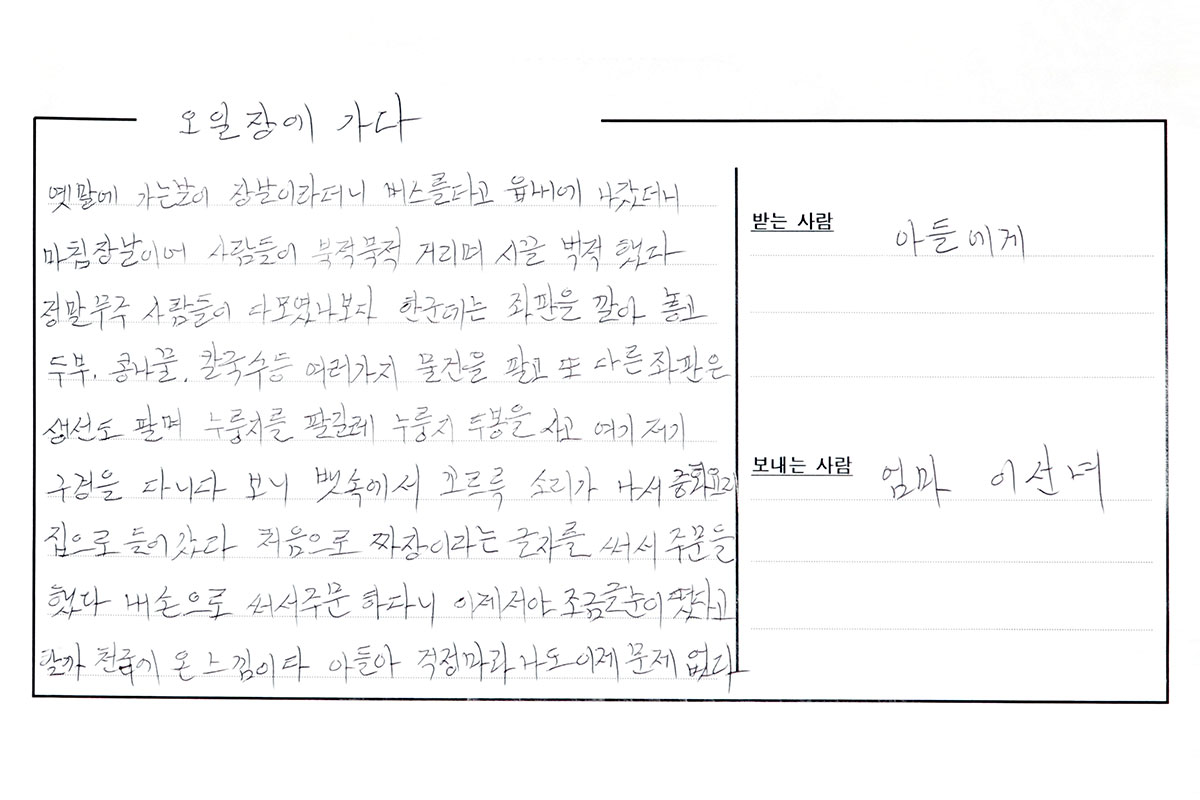 오일장에 가다
옛말에 가는날이 장날이라더니 버스를타고 읍내에 나갔더니
마침장날이어 사람들이 북적북적 거리며 시끌 벅적 했다
정말무주 사람들이 다모였나보다 한군데는 좌판을 깔아 놓고
두부, 콩나물, 칼국수등 여러가지 물건을 팔고 또 다른좌판은
생선도 팔며 누룽지를 팔길레 누룽지 두봉을 사고 여기 저기
구경을 다니다 보니 뱃속에서 꼬르륵 소리가 나서 중화요리
집으로 들어갔다 처음으로 짜장이라는 글자를 써서 주문을
했다 내손으로 써서주문 하다니 이제저야 조금글눈이 떴다고
할까 천국에 온 느낌이다 아들아 걱정마라 나도이제 문제 없다
받는 사람 아들에게
보내는 사람 엄마 이선녀